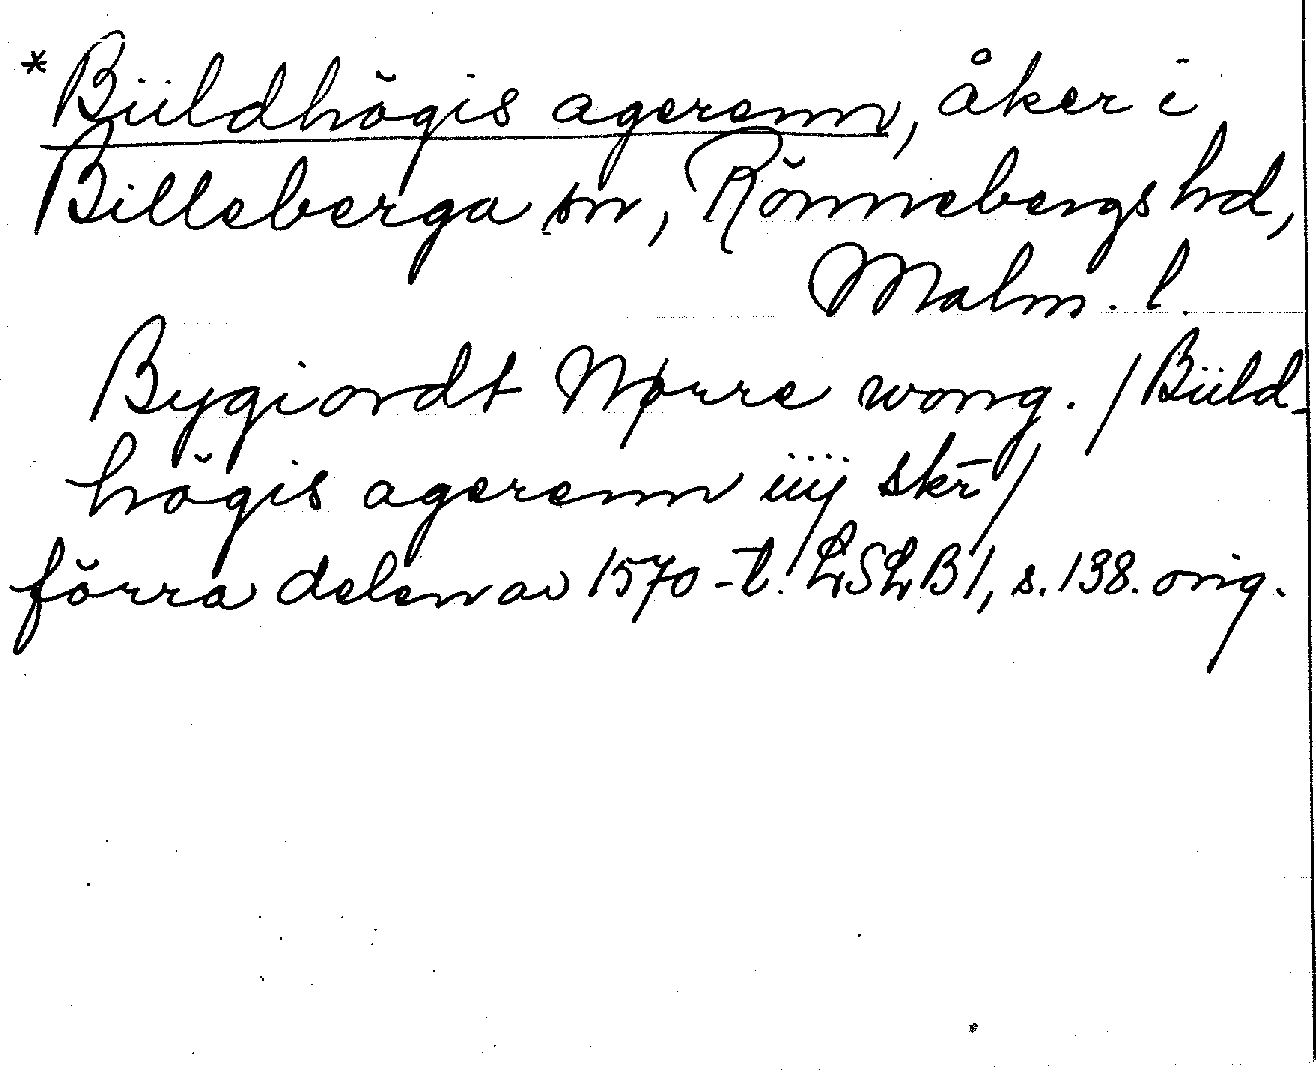 *Biildhögis agerenn, åker i
Billeberga sn, Rönnebergs hd,
Malm. l.
Bygiordt Nørre wong. / Biild-
högis agerenn iiij skr̄ /
förra delen av 1570-t. LSLB1, s. 138. orig.